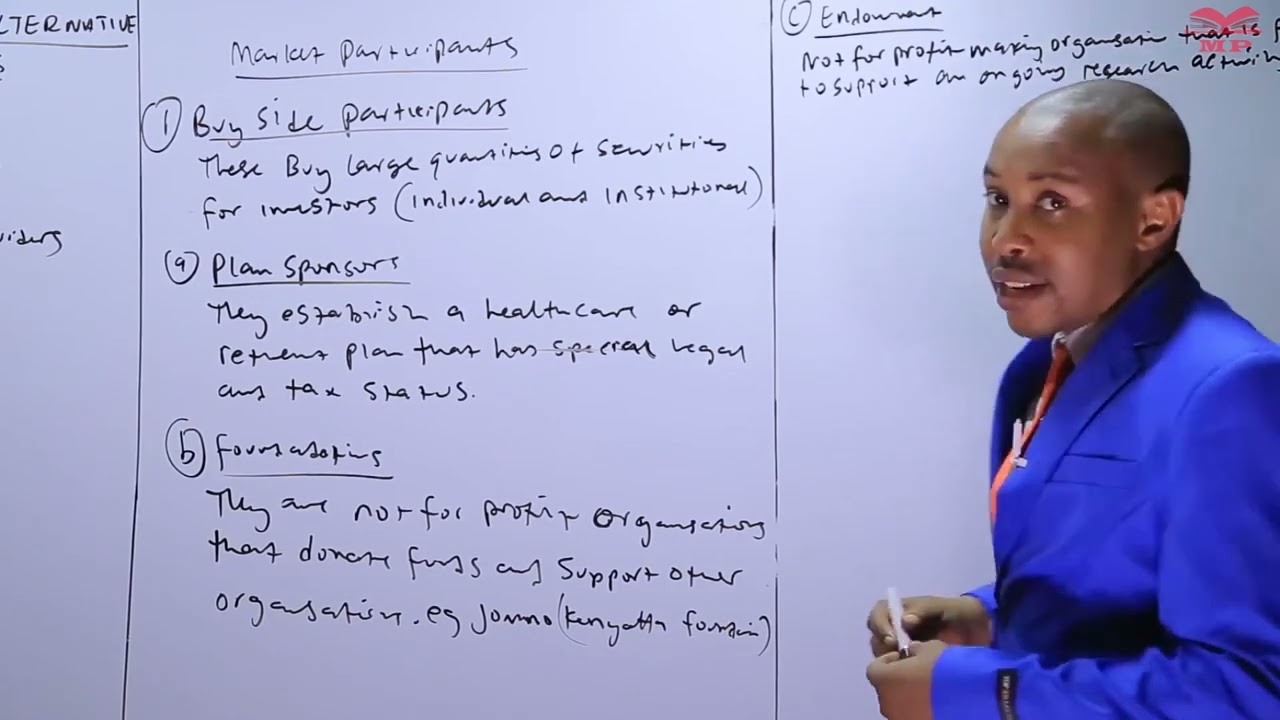 LTERNATIVE
viders
Market participants
① Buy side participants
These Buy Large quantities of securities
for investors (individual and institutional)
(a) Plan sponsors
They establish a healthcare or
retirement plan that has special legal
and tax status.
(b) foundations
They are not for profit organisations
that donate funds and support other
organisations. eg Jommo (Kenyatta foundation)
(c) Endowment
Not for profit making organisation that is f
to support an ongoing research activi
MP